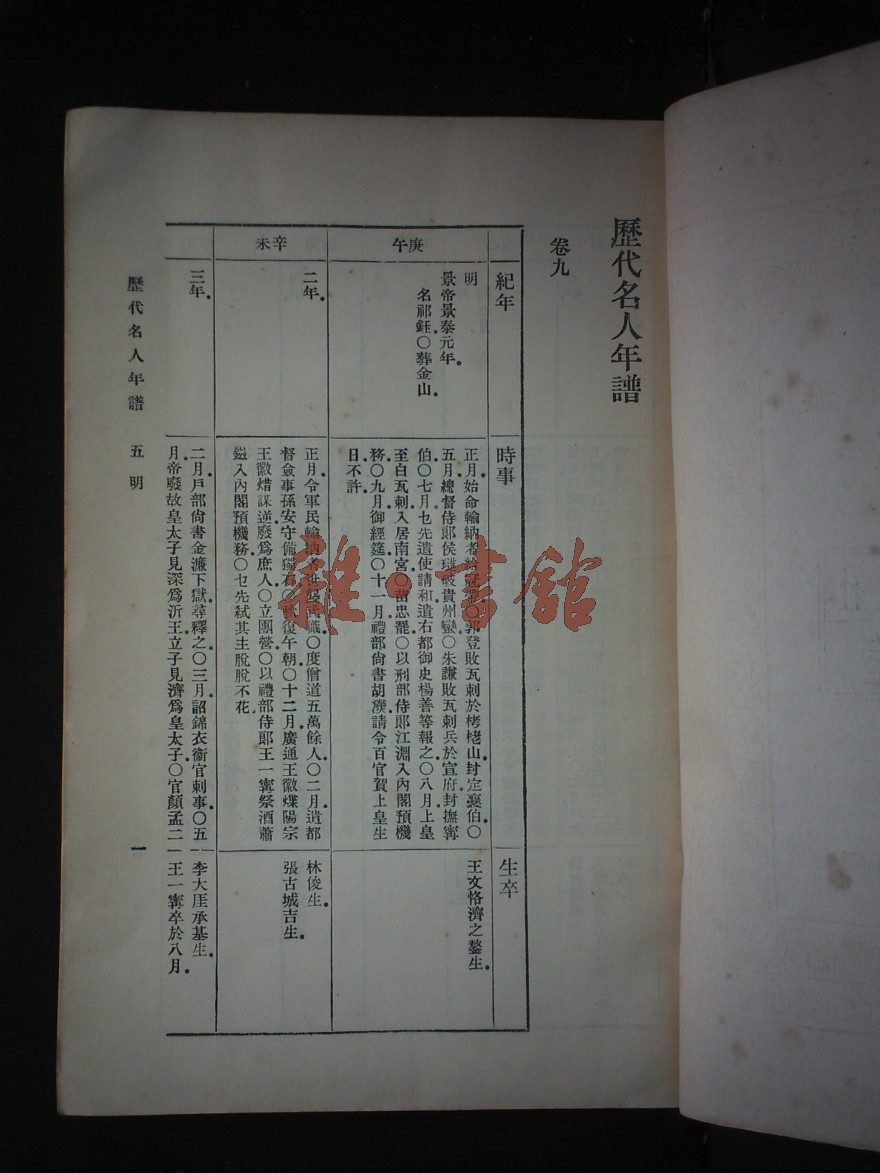 歷代名人年譜
卷九
紀年
時事
生卒
庚午
明
景帝景泰元年。
名祁鈺〇葬金山。
正月始命輸納者給冠帶〇郭登敗瓦剌於栲栳山封定襄伯〇
五月總督侍郎侯璡破貴州蠻〇朱謙敗瓦剌兵於宣府封撫寧
伯〇七月乜先遣使請和遣右都御史楊善等報之〇八月上皇
至自瓦剌入居南宮〇苗忠罷〇以刑部侍郎江淵入內閣預機
務〇九月御經筵〇十一月禮部尚書胡濙請令百官賀上皇生
日不許。
王文恪濟之鏊生。
辛未
二年。
正月令軍民輸納者世襲武職〇度僧道五萬餘人〇二月遣都
督僉事孫安守備獨石〇秋復午朝〇十二月廣通王徽煠陽宗
王徽焟謀逆廢爲庶人〇立團營〇以禮部侍郎王一寧祭酒蕭
鎡入內閣預機務〇乜先弒其主脫脫不花。
林俊生。
張古城吉生。
三年。
二月戶部尚書金濂下獄尋釋之〇三月詔錦衣衞官刺事〇五
月帝廢故皇太子見深爲沂王立子見濟爲皇太子〇官顏孟二
李大厓承基生。
王一寧卒於八月。
歷代名人年譜 五 明
一
雜·書館